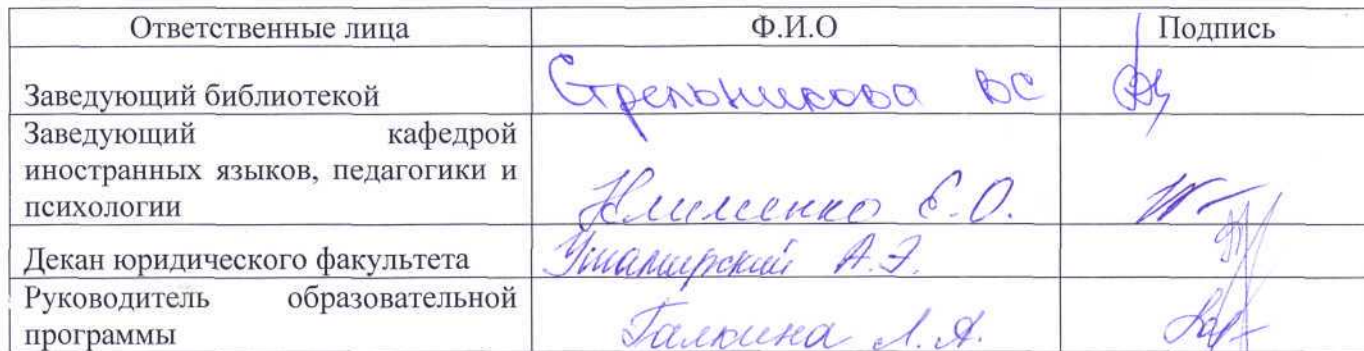 Ответственные лица Ф.И.О Подпись
Заведующий библиотекой Стрельникова ВС
Заведующий кафедрой
иностранных языков, педагогики и
психологии Клименко Е.О.
Декан юридического факультета А.Э.
Руководитель образовательной
программы Галкина Л.А.